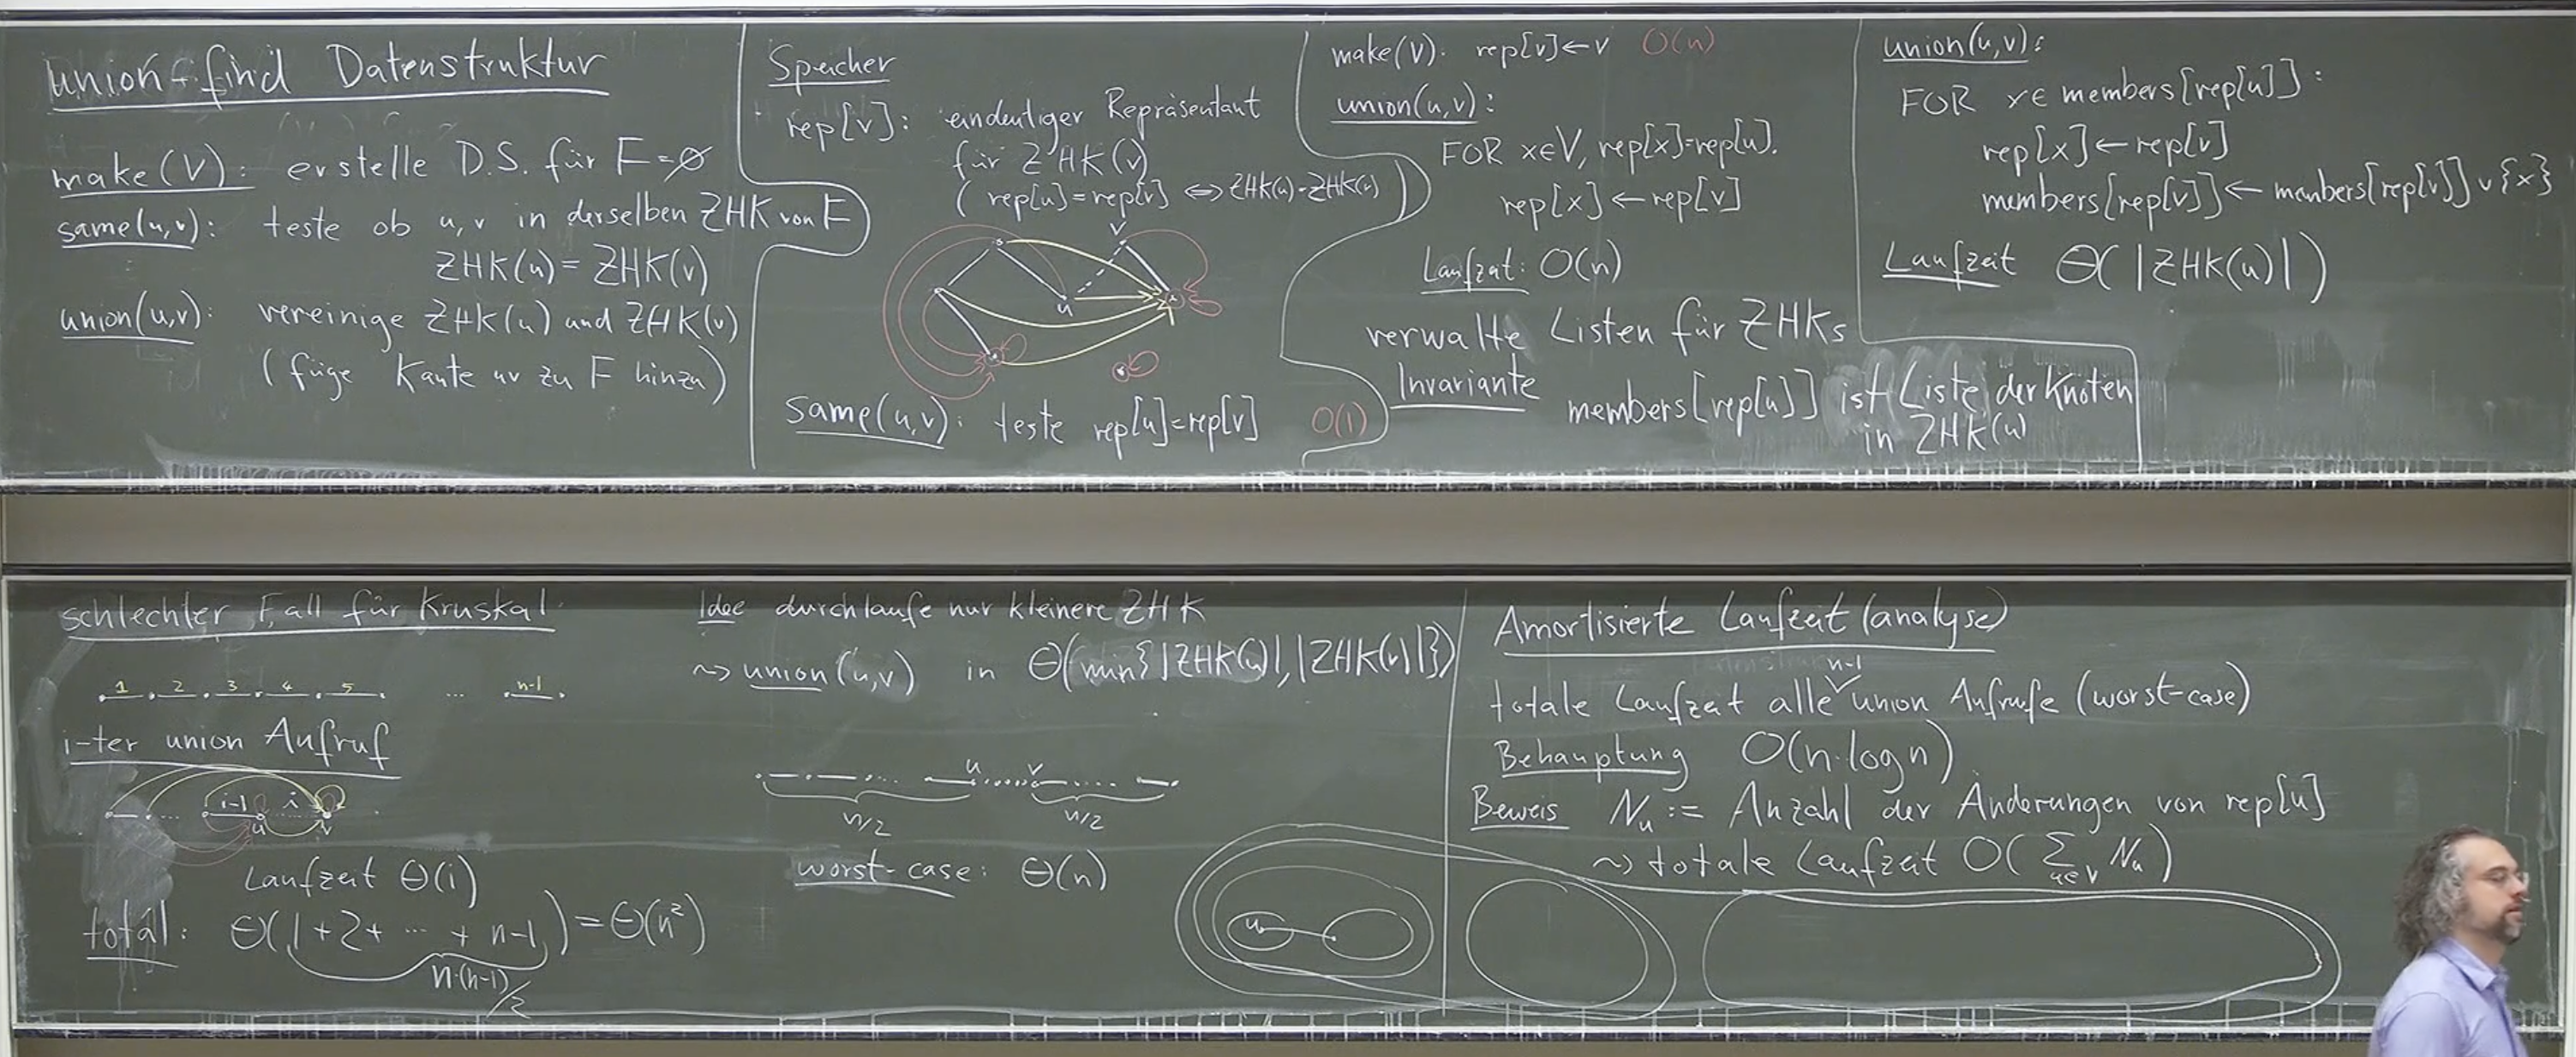 union-find Datenstruktur
make(V): erstelle D.S. für F=∅
same(u,v): teste ob u,v in derselben ZHK von F
ZHK(u) = ZHK(v)
union(u,v): vereinige ZHK(u) und ZHK(v)
(füge Kante uv zu F hinzu)
Speicher
rep[v]: eindeutiger Repräsentant
für ZHK(v)
(rep[u]=rep[v] ⇔ ZHK(u)=ZHK(v))
v
u
same(u,v): teste rep[u]=rep[v] O(1)
make(V): rep[v]←v O(n)
union(u,v):
FOR x∈V, rep[x]=rep[u].
rep[x]←rep[v]
Laufzeit: O(n)
verwalte Listen für ZHKs
Invariante
members[rep[u]] ist Liste der Knoten
in ZHK(u)
union(u,v):
FOR x∈members[rep[u]]:
rep[x]←rep[v]
members[rep[v]]←members[rep[v]]∪{x}
Laufzeit Θ(|ZHK(u)|)
schlechter Fall für Kruskal
1 2 3 4 5 ... n-1
i-ter union Aufruf
... i-1 i
u v
Laufzeit Θ(i)
total: Θ(1+2+ ... + n-1) = Θ(n²)
n·(n-1)/2
Idee durchlaufe nur kleinere ZHK
⤳ union(u,v) in Θ(min{|ZHK(u)|,|ZHK(v)|})
u v
n/2 n/2
worst-case: Θ(n)
u
Amortisierte Laufzeit(analyse)
n-1
totale Laufzeit alle union Aufrufe (worst-case)
Behauptung O(n·log n)
Beweis Nᵤ := Anzahl der Änderungen von rep[u]
⤳ totale Laufzeit O(∑ Nᵤ)
u∈V